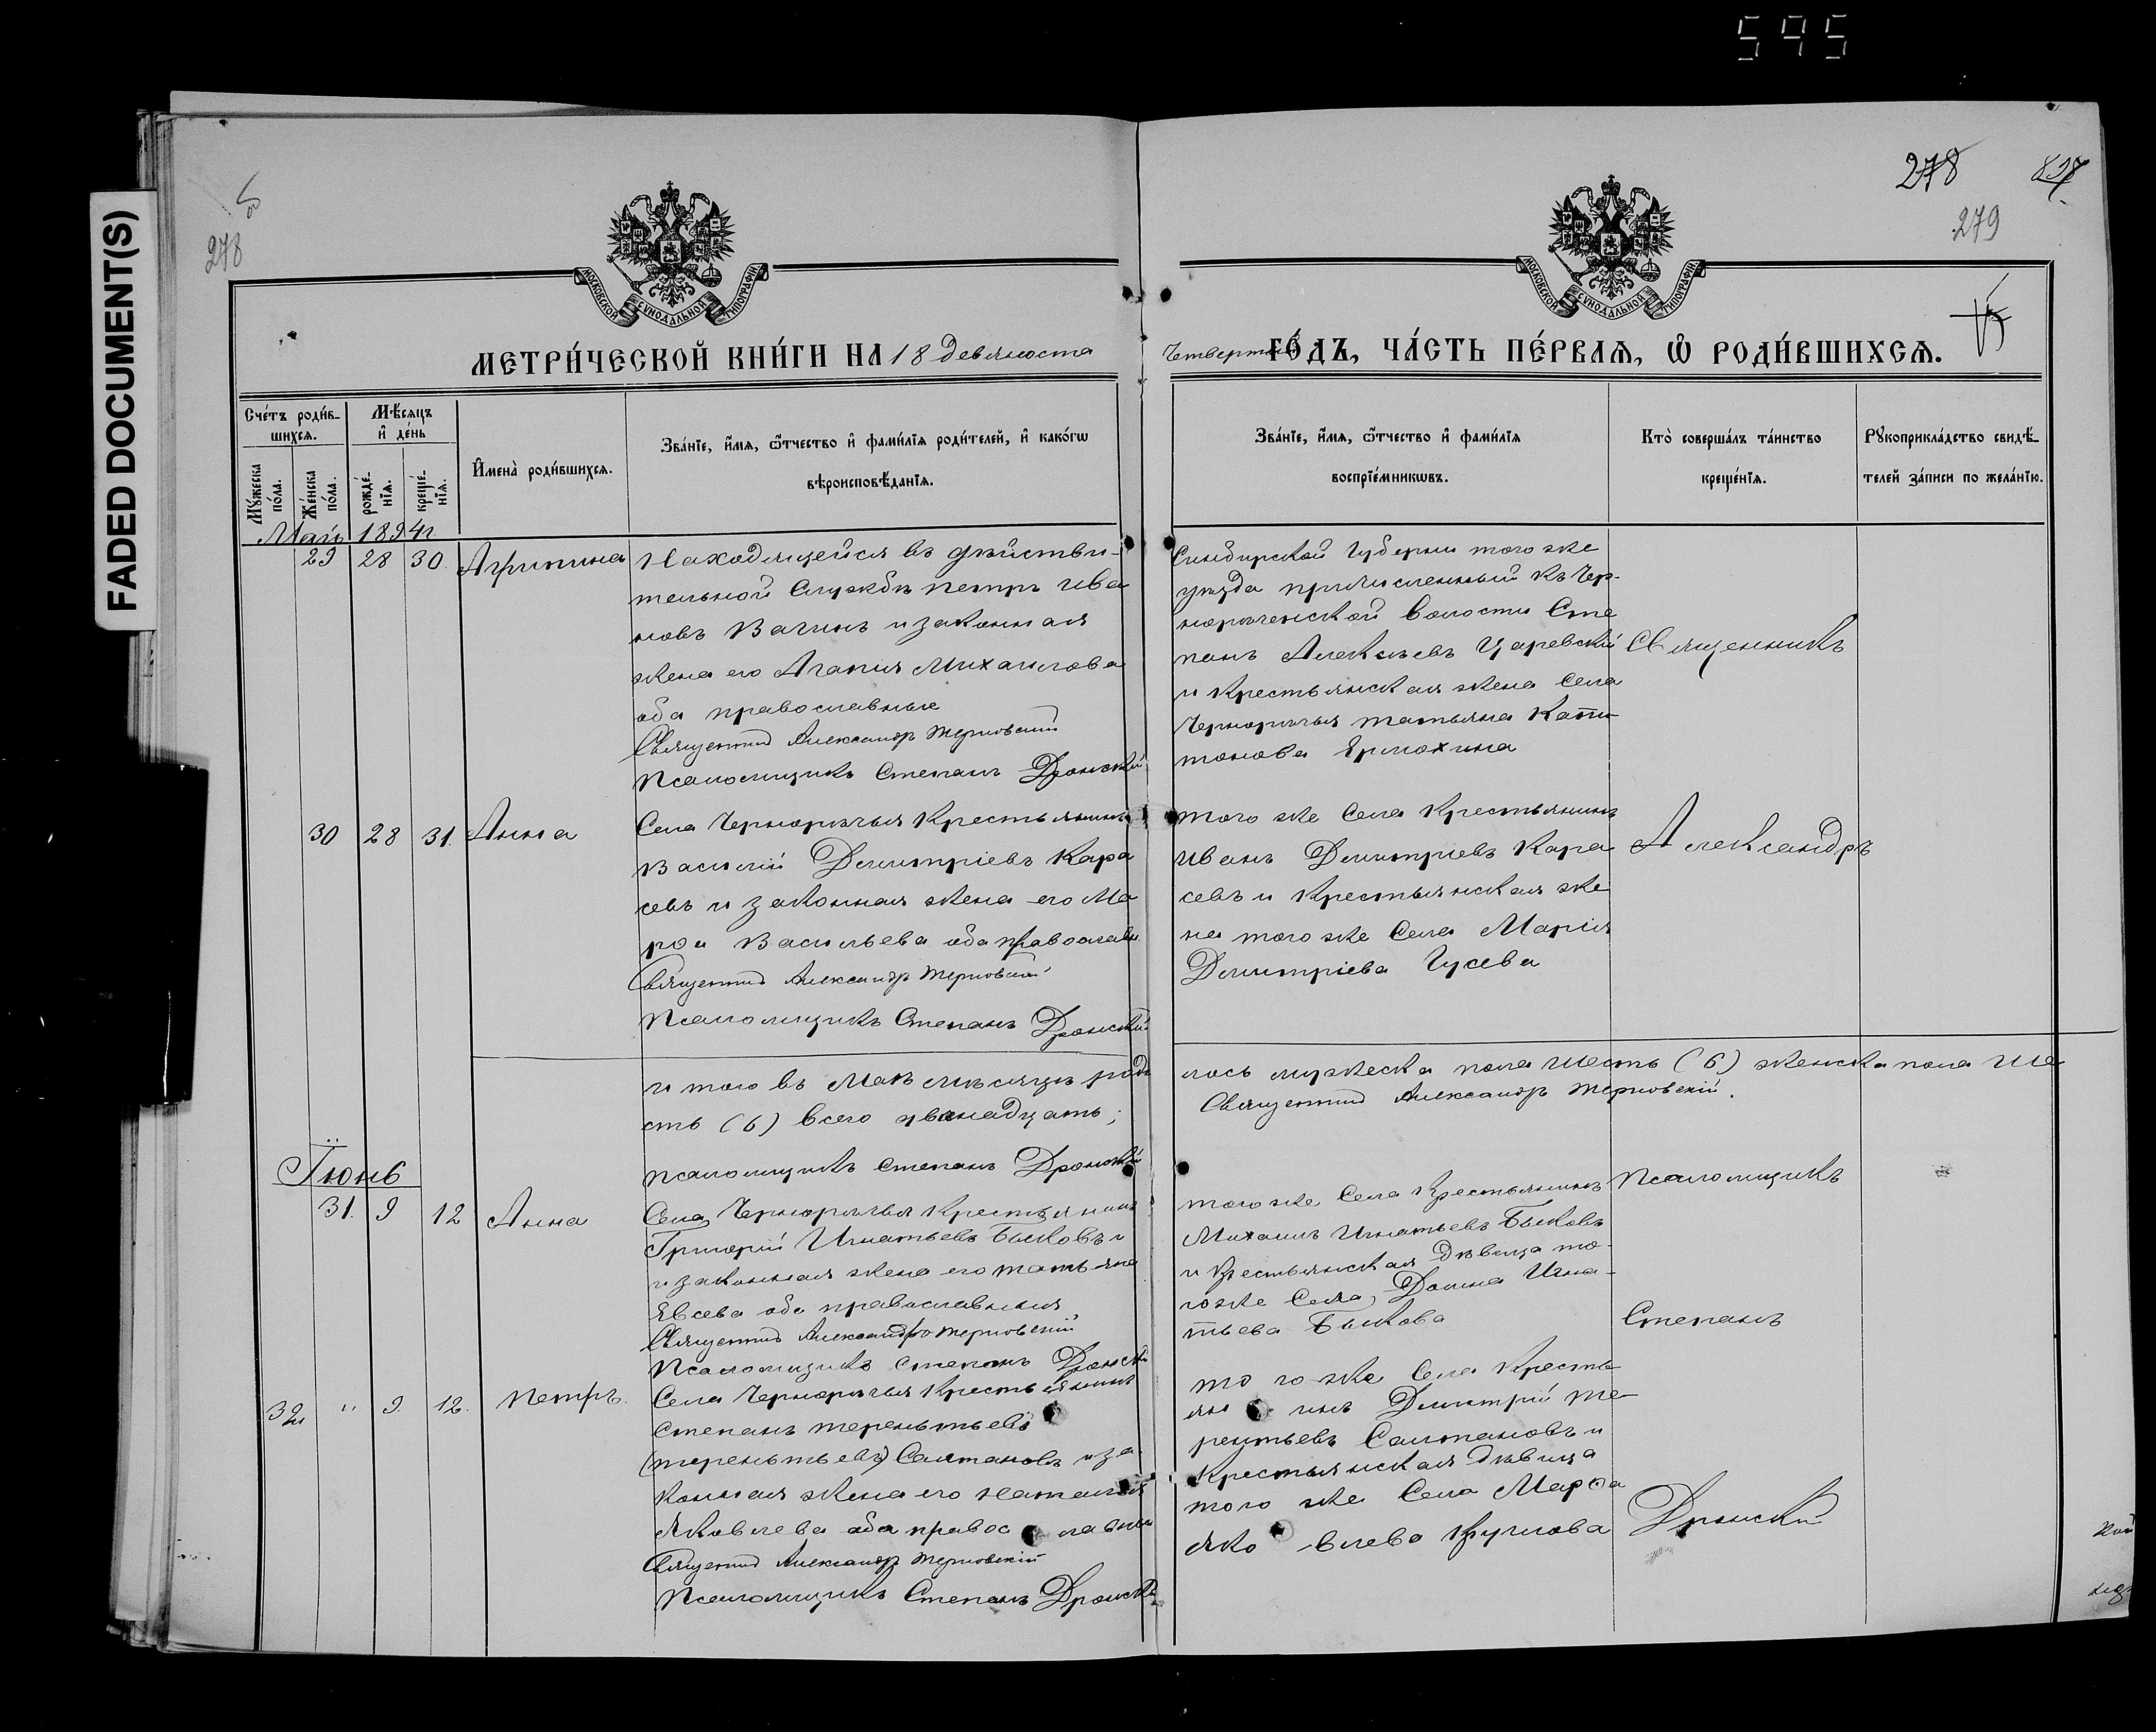 595
FADED DOCUMENT(S)
278
278
279
МОСКОВСКОЙ СУНОДАЛЬНОЙ ТИПОГРАФІИ.
МОСКОВСКОЙ СУНОДАЛЬНОЙ ТИПОГРАФІИ.
МЕТРИ́ЧЕСКОЙ КНИ́ГИ НА 18 девяноста
Четвертый ГО́ДЪ, ЧА́СТЬ ПЕ́РВАЯ, Ѡ РОДИ́ВШИХСЯ.
Сче́тъ роди́в-
шихся.
Мѣ́сяцъ
и҆ де́нь
Мꙋ́жеска
по́ла.
Же́нска
по́ла.
рожде́-
нїя.
креще́-
нїя.
И҆мена̀ роди́вшихся.
Зва́нїе, и҆́мя, ѻ҆́тчество и҆ фами́лїя роди́телей, и҆ како́гѡ
вѣроисповѣ́данїя.
Зва́нїе, и҆́мя, ѻ҆́тчество и҆ фами́лїя
воспрїе́мникѡвъ.
Кто̀ соверша́лъ та́инство
креще́нїя.
Рꙋкоприкла́дство свидѣ́-
телей за́писи по жела́нїю.
Май 1894 г.
29 28 30. Агрипина
Находящейся въ действи-
тельной Службѣ Петръ Ива
новъ Вагинъ и законная
жена его Агапия Михаилова
оба православные
Священникъ Александръ Терновский
Псаломщикъ Степанъ Дронский
Симбирской Губернии того же
уѣзда причисленный къ Чер-
норѣченской Волости Сте
панъ Алексѣевъ Царевский
и Крестьянская жена Села
Чернорѣчья Татьяна Капи-
тонова Ермохина
Священникъ
30 28 31. Анна
Села Чернорѣчья Крестьянинъ
Василий Димитріевъ Кара
севъ и законная жена его Ма
рѳа Васильева оба православн.
Священникъ Александръ Терновский
Псаломщикъ Степанъ Дронский
Того же Села Крестьянинъ
Иванъ Димитріевъ Кара
севъ и Крестьянская же
на того же Села Марія
Димитріева Гусева
Александръ
и того въ Маѣ мѣсяцѣ роди
лось мужеска пола шесть (6) женска пола ше
сть (6) всего двенадцать;
Священникъ Александръ Терновскій.
Псаломщикъ Степанъ Дронский
Іюнь
31. 9 12 Анна
Села Чернорѣчья Крестьянинъ
Григорій Игнатьевъ Быковъ и
и законная жена его Татьяна
Евсева оба православныя
Священникъ Александръ Терновскій
Псаломщикъ Степанъ Дронск
того же Села Крестьянинъ
Михаилъ Игнатьевъ Быковъ
и Крестьянская Дѣвица то-
гоже Села, Домна Игна-
тьева Быкова
Псаломщикъ
Степанъ
32 " 9. 12. Петръ.
Села Чернорѣчья Крестьянинъ
Степанъ Тереньтьевъ
(Тереньтьевъ) Салтановъ и за
конная жена его Наталья
Яковлева оба православны
Священникъ Александръ Терновскій
Псаломщикъ Степанъ Дронск
того же Села Кресть
янинъ Димитрій Те-
рентьевъ Салтановъ и
Крестьянская дѣвица
того же Села Марѳа
Яковлева Круглова
Дронский